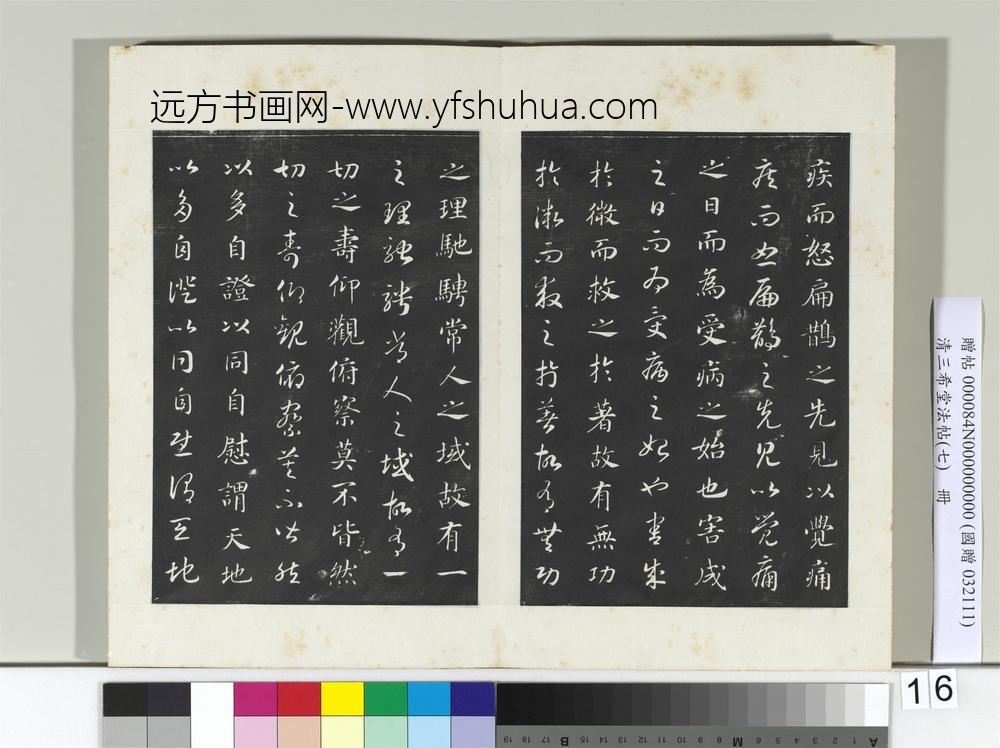 远方书画网-www.yfshuhua.com
疾而怒扁鵲之先見以覺痛
疾而怒扁鵲之先見以覺痛
之日而為受病之始也害成
之日而為受病之始也害成
於微而救之於著故有無功
於微而救之於著故有無功
之理馳騁常人之域故有一
之理馳騁常人之域故有一
切之壽仰觀俯察莫不皆然
切之壽仰觀俯察莫不皆然
以多自證以同自慰謂天地
以多自證以同自慰謂天地
贈帖 000084N000000000 (國贈 032111)
清三希堂法帖(七) 冊
16
A 1 2 3 4 5 6 M 8 9 10 11 12 13 14 15 B 17 18 19